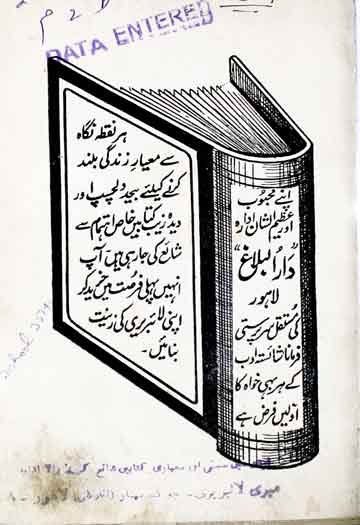 DATA ENTERED
ہر نقطہ نگاہ
سے معیارِ زندگی بلند
کرنے کیلئے بیحد دلچسپ اور
دیدہ زیب کتابیں خاص اہتمام سے
شائع کی جا رہی ہیں آپ
انہیں پہلی فرصت میں خرید کر
اپنی لائبریری کی زینت
بنائیں۔
اپنے محبوب
اور عظیم الشان ادارہ
"دارالبلاغ"
لاہور
کی مستقل سرپرستی
فرمانا شائستہ ادب
کے ہر بہی خواہ کا
اولین فرض ہے
سستی اور معیاری کتابیں شائع کرنے والا ادارہ
میری لائبریری
لاہور